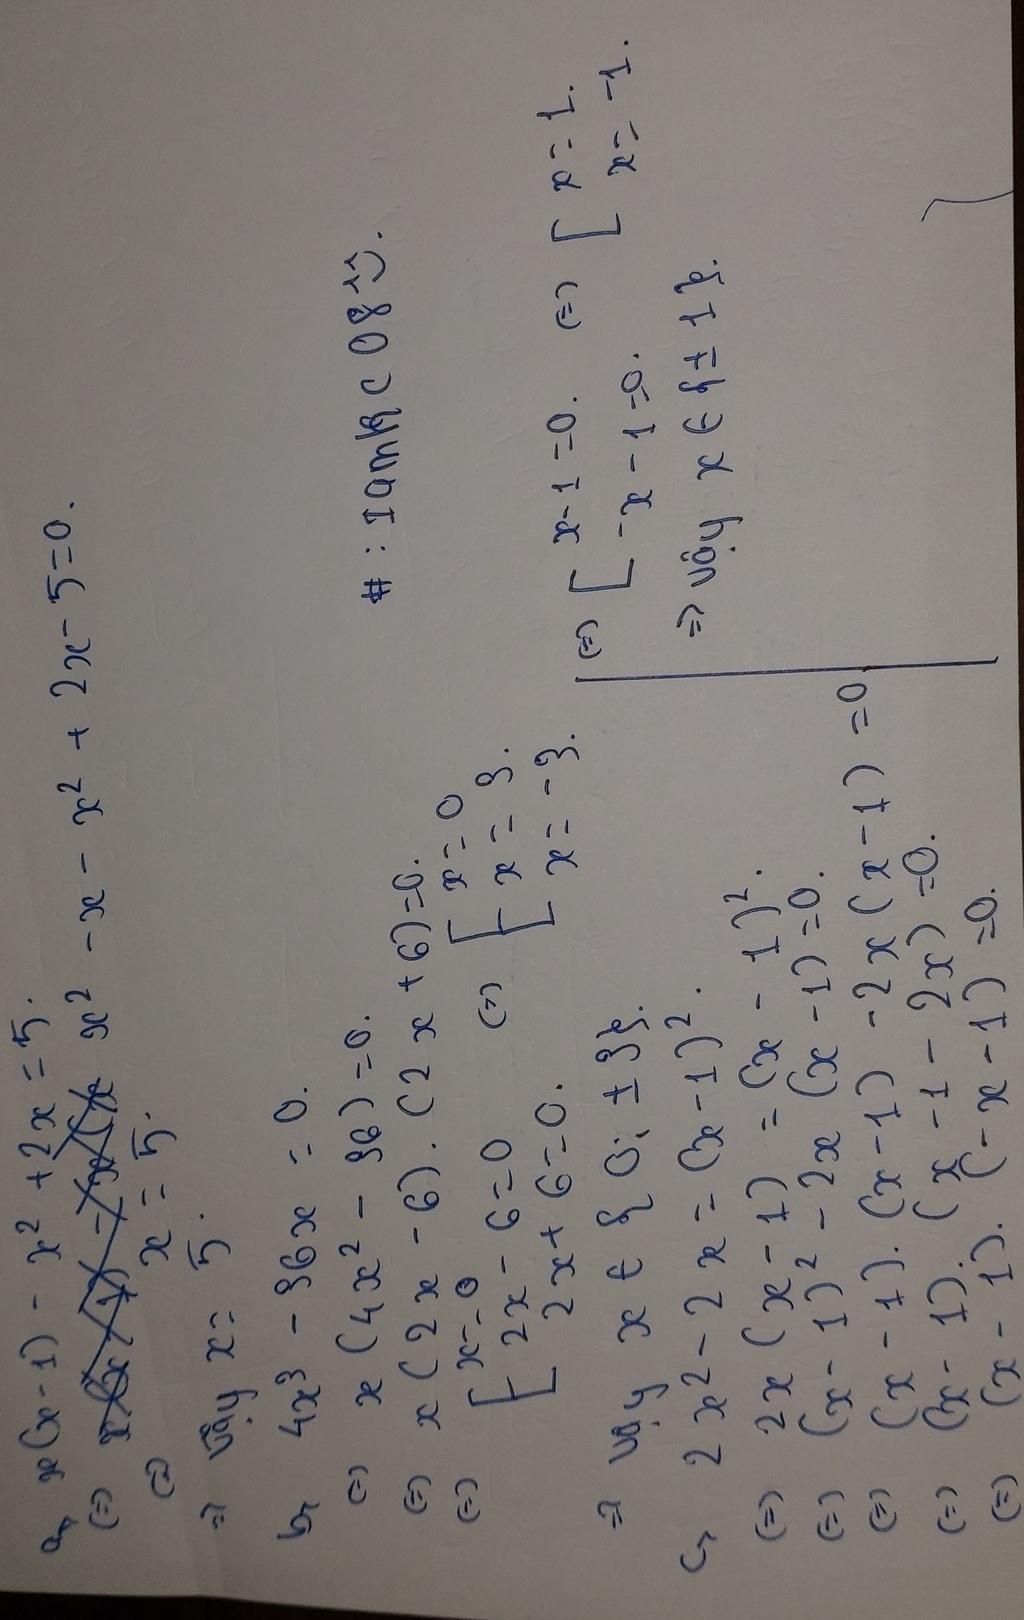 a, x(x-1) - x² + 2x = 5.
(=) x² - x - x² + 2x - 5 = 0.
(=) x = 5.
=) vậy x = 5.
b, 4x³ - 36x = 0.
(=) x(4x² - 36) = 0.
(=) x(2x - 6).(2x + 6) = 0.
(=) [ x = 0
[ 2x - 6 = 0
2x + 6 = 0.
(=) [ x = 0
[ x = 3.
x = -3.
=) vậy x ∈ {0; ±3}.
c, 2x² - 2x = (x-1)².
(=) 2x(x-1) = (x-1)².
(=) (x-1)² - 2x(x-1) = 0.
(=) (x-1).(x-1) - 2x(x-1) = 0
(=) (x-1).(x-1-2x) = 0.
(=) (x-1).(-x-1) = 0.
# : Iam
08
(=) [ x-1 = 0.
-x-1 = 0.
(=) [ x = 1.
x = -1.
=) vậy x ∈ {±1}.